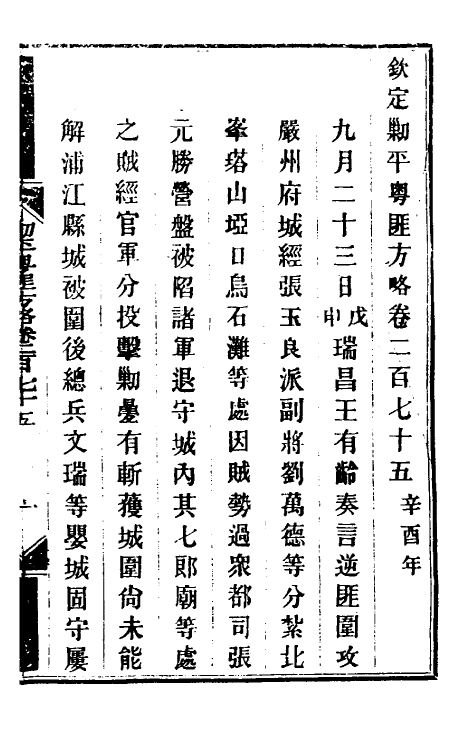 欽定勦平粵匪方略卷二百七十五 辛酉年
九月二十三日戊申瑞昌王有齡奏言逆匪圍攻
嚴州府城經張玉良派副將劉萬德等分紮北
峯塔山埡口烏石灘等處因賊勢過衆都司張
元勝營盤被陷諸軍退守城內其七郎廟等處
之賊經官軍分投擊勦疊有斬獲城圍尙未能
解浦江縣城被圍後總兵文瑞等嬰城固守屢
勦平粵匪方略卷二百七十五
一